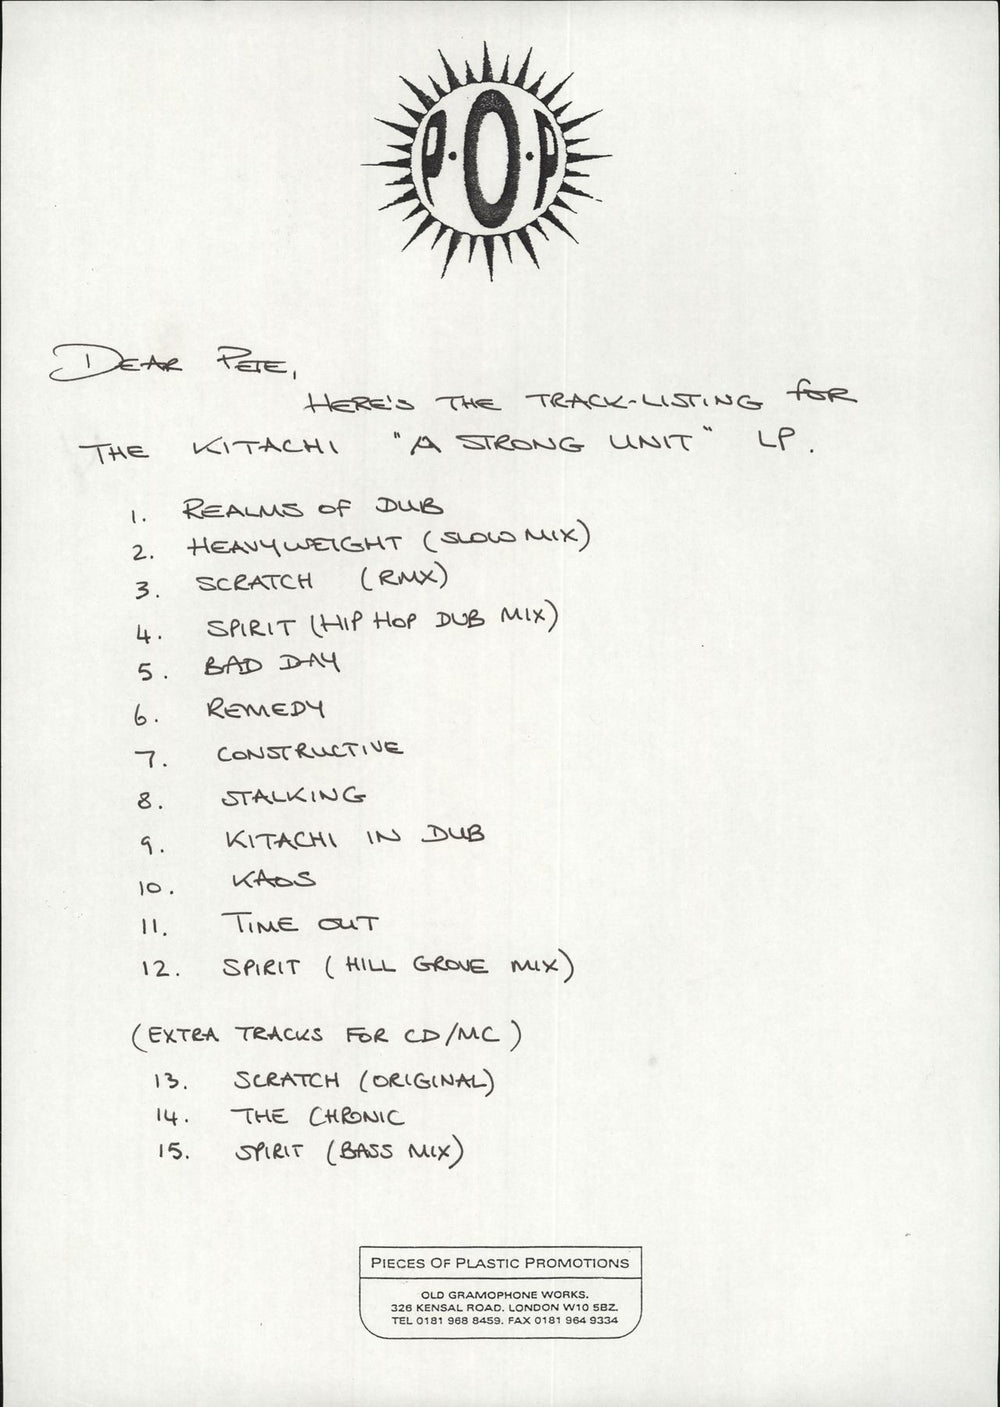 P.O.P
DEAR PETE,
HERE'S THE TRACK-LISTING FOR
THE KITACHI "A STRONG UNIT" LP.
1. REALMS OF DUB
2. HEAVYWEIGHT (SLOW MIX)
3. SCRATCH (RMX)
4. SPIRIT (HIP HOP DUB MIX)
5. BAD DAY
6. REMEDY
7. CONSTRUCTIVE
8. STALKING
9. KITACHI IN DUB
10. KAOS
11. TIME OUT
12. SPIRIT (HILL GROVE MIX)
(EXTRA TRACKS FOR CD/MC)
13. SCRATCH (ORIGINAL)
14. THE CHRONIC
15. SPIRIT (BASS MIX)
PIECES OF PLASTIC PROMOTIONS
OLD GRAMOPHONE WORKS.
326 KENSAL ROAD. LONDON W10 5BZ.
TEL 0181 968 8459. FAX 0181 964 9334